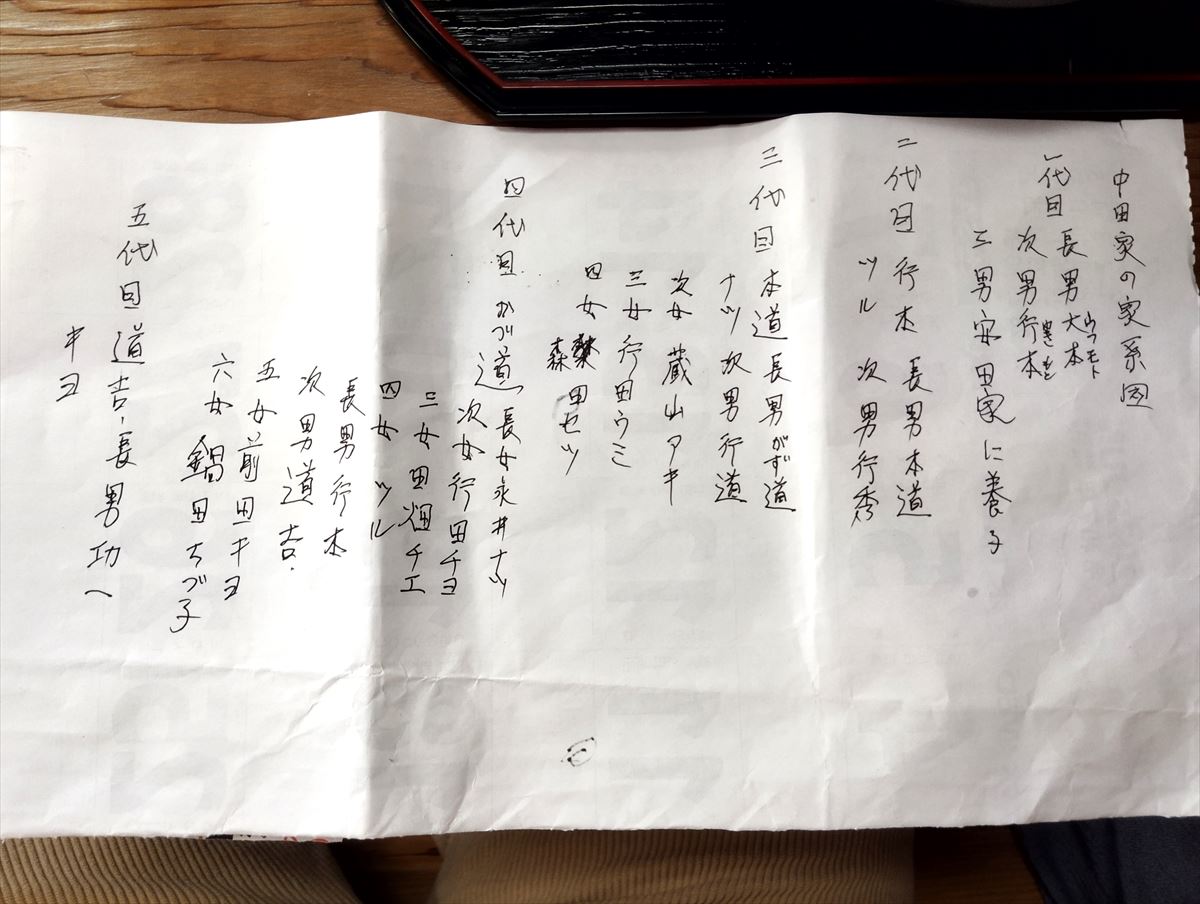 中田家の家系図
一代目 長男大本
次男行本 ゆきもと
三男 安田家に養子
二代目 行本 長男本道
ツル 次男行秀
三代目 本道 長男かず道
ナツ 次男行道
次女 蔵山アキ
三女 行田ウミ
四女 森田セツ
四代目 かづ道 長女永井ナツ
次女行田チヨ
三女田畑チエ
四女ツル
長男行本
次男道吉
五女前田キヨ
六女鍋田ちづ子
五代目 道吉 長男功へ
キヨ